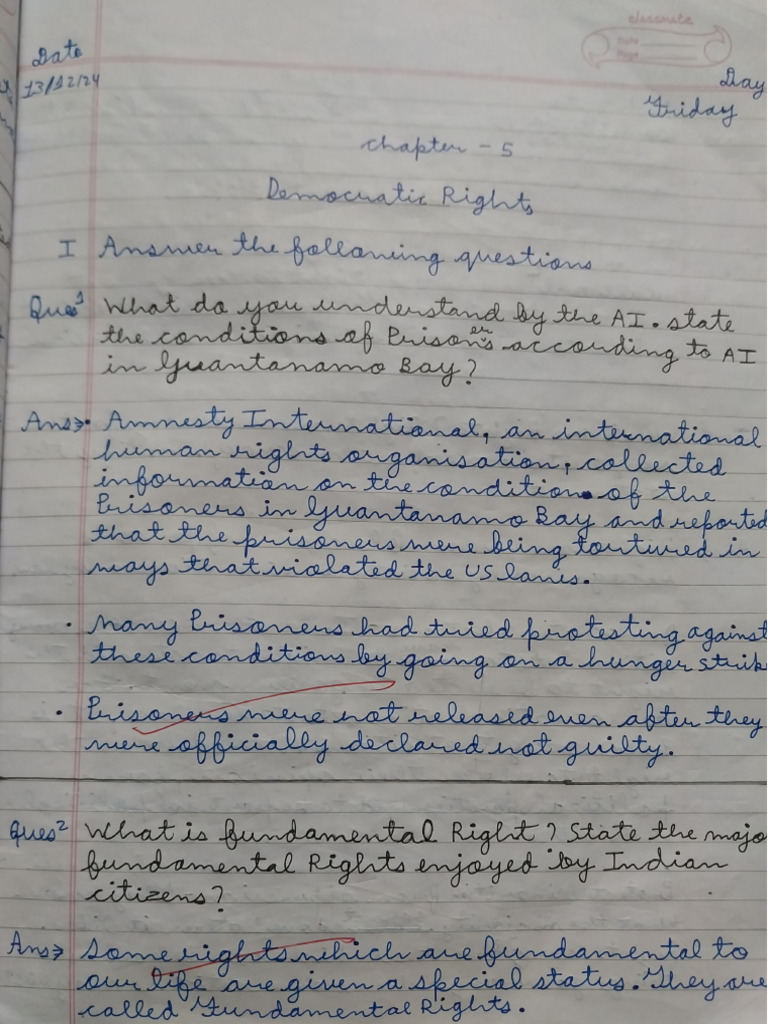 classmate
Date
Page
Date
13/12/24
Day
Friday
Chapter - 5
Democratic Rights
I Answer the following questions
Ques1 What do you understand by the AI. state
the conditions of Prisoners according to AI
in Guantanamo Bay?
Ans⇒• Amnesty International, an international
human rights organisation, collected
information on the condition of the
Prisoners in Guantanamo Bay and reported
that the prisoners were being tortured in
ways that violated the US laws.
• Many Prisoners had tried protesting against
these conditions by going on a hunger strik
• Prisoners were not released even after they
were officially declared not guilty.
Ques2 What is fundamental Right? State the majo
fundamental Rights enjoyed by Indian
citizens?
Ans⇒ Some rights which are fundamental to
our life are given a special status. They are
called Fundamental Rights.